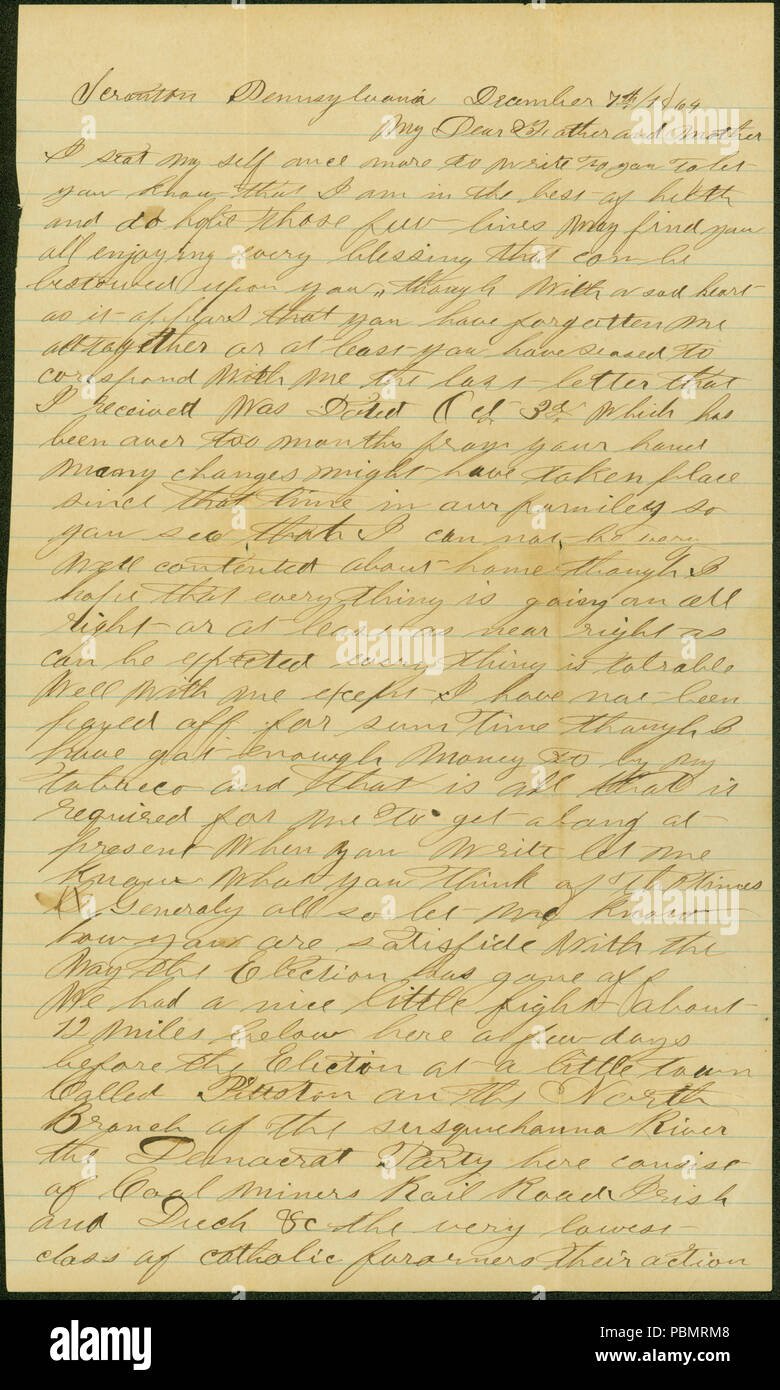 Scranton Pennsylvania December 7th/1864
My Dear Father and Mother
I seat my self once more to write to you to let
you know that I am in the best of helth
and do hope those few lines may find you
all enjoying every blessing that can be
bestowed upon you,, though With a sad heart
as it appears that you have forgotten me
alltogether or at least you have seased to
corispond With me the last letter that
I received Was Dated Oct 3rd Which has
been over too months from your hand
many changes might have taken place
since that time in our familey so
you see that I can not be very
Well contented about home though I
hope that every thing is going on all
right or at least as near right as
can be expected every thing is tolrable
Well With me except I have not been
payed off for sum time though I
have got enough Money to by my
tobacco and that is all that is
required for me to get along at
present When you write let me
know What you think of the times
Generaly all so let me know
how you are satisfide With the
Way the Election has gone off
We had a nice little fight about
12 miles below here a few days
before the Election at a little town
Called Pittston on the North
Branch of the susquehanna River
the Democrat Party here consist
of Coal miners Rail Road Irish
and Duch &c the very lowest
class of catholic forarners their action
alamy
alamy stock photo
Image ID: PBMRM8
www.alamy.com